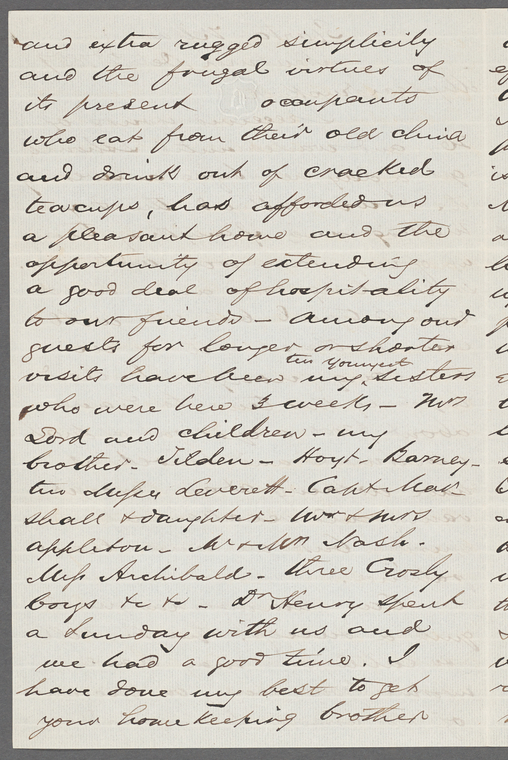 and extra rugged simplicity
and the frugal virtues of
its present occupants
who eat from their old china
and drink out of cracked
teacups, has afforded us
a pleasant home and the
opportunity of extending
a good deal of hospitality
to our friends - Among our
guests for longer or shorter
two youngest
visits have been my sisters
who were here 3 weeks - Mrs
Lord and children - my
brother - Tilden - Hoyt - Barney -
two Misses Leverett - Capt Mar-
shall & daughter - Mr & Mrs
Appleton - Mr & Mrs Nash -
Miss Archibald - three Crosby
boys &c &c - Dr Henry spent
a Sunday with us and
we had a good time. I
have done my best to get
your home keeping brother